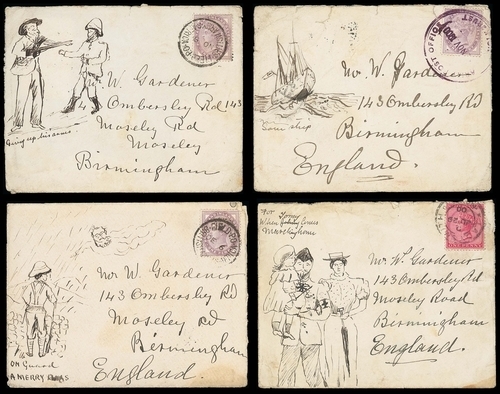 Mr W. Gardener
Ombersley Rd 143
Moseley Rd
Moseley
Birmingham
Giving up his arms
Mr W. Gardener
143 Ombersley Rd
Birmingham
England.
POST OFFICE
Mr W. Gardener
143 Ombersley Rd
Moseley Rd
Birmingham
England.
On Guard
A MERRY XMAS
For
When Johnny Comes
Marching home
Mr W. Gardener
143 Ombersley Rd
Moseley Road
Birmingham
England.
ONE PENNY